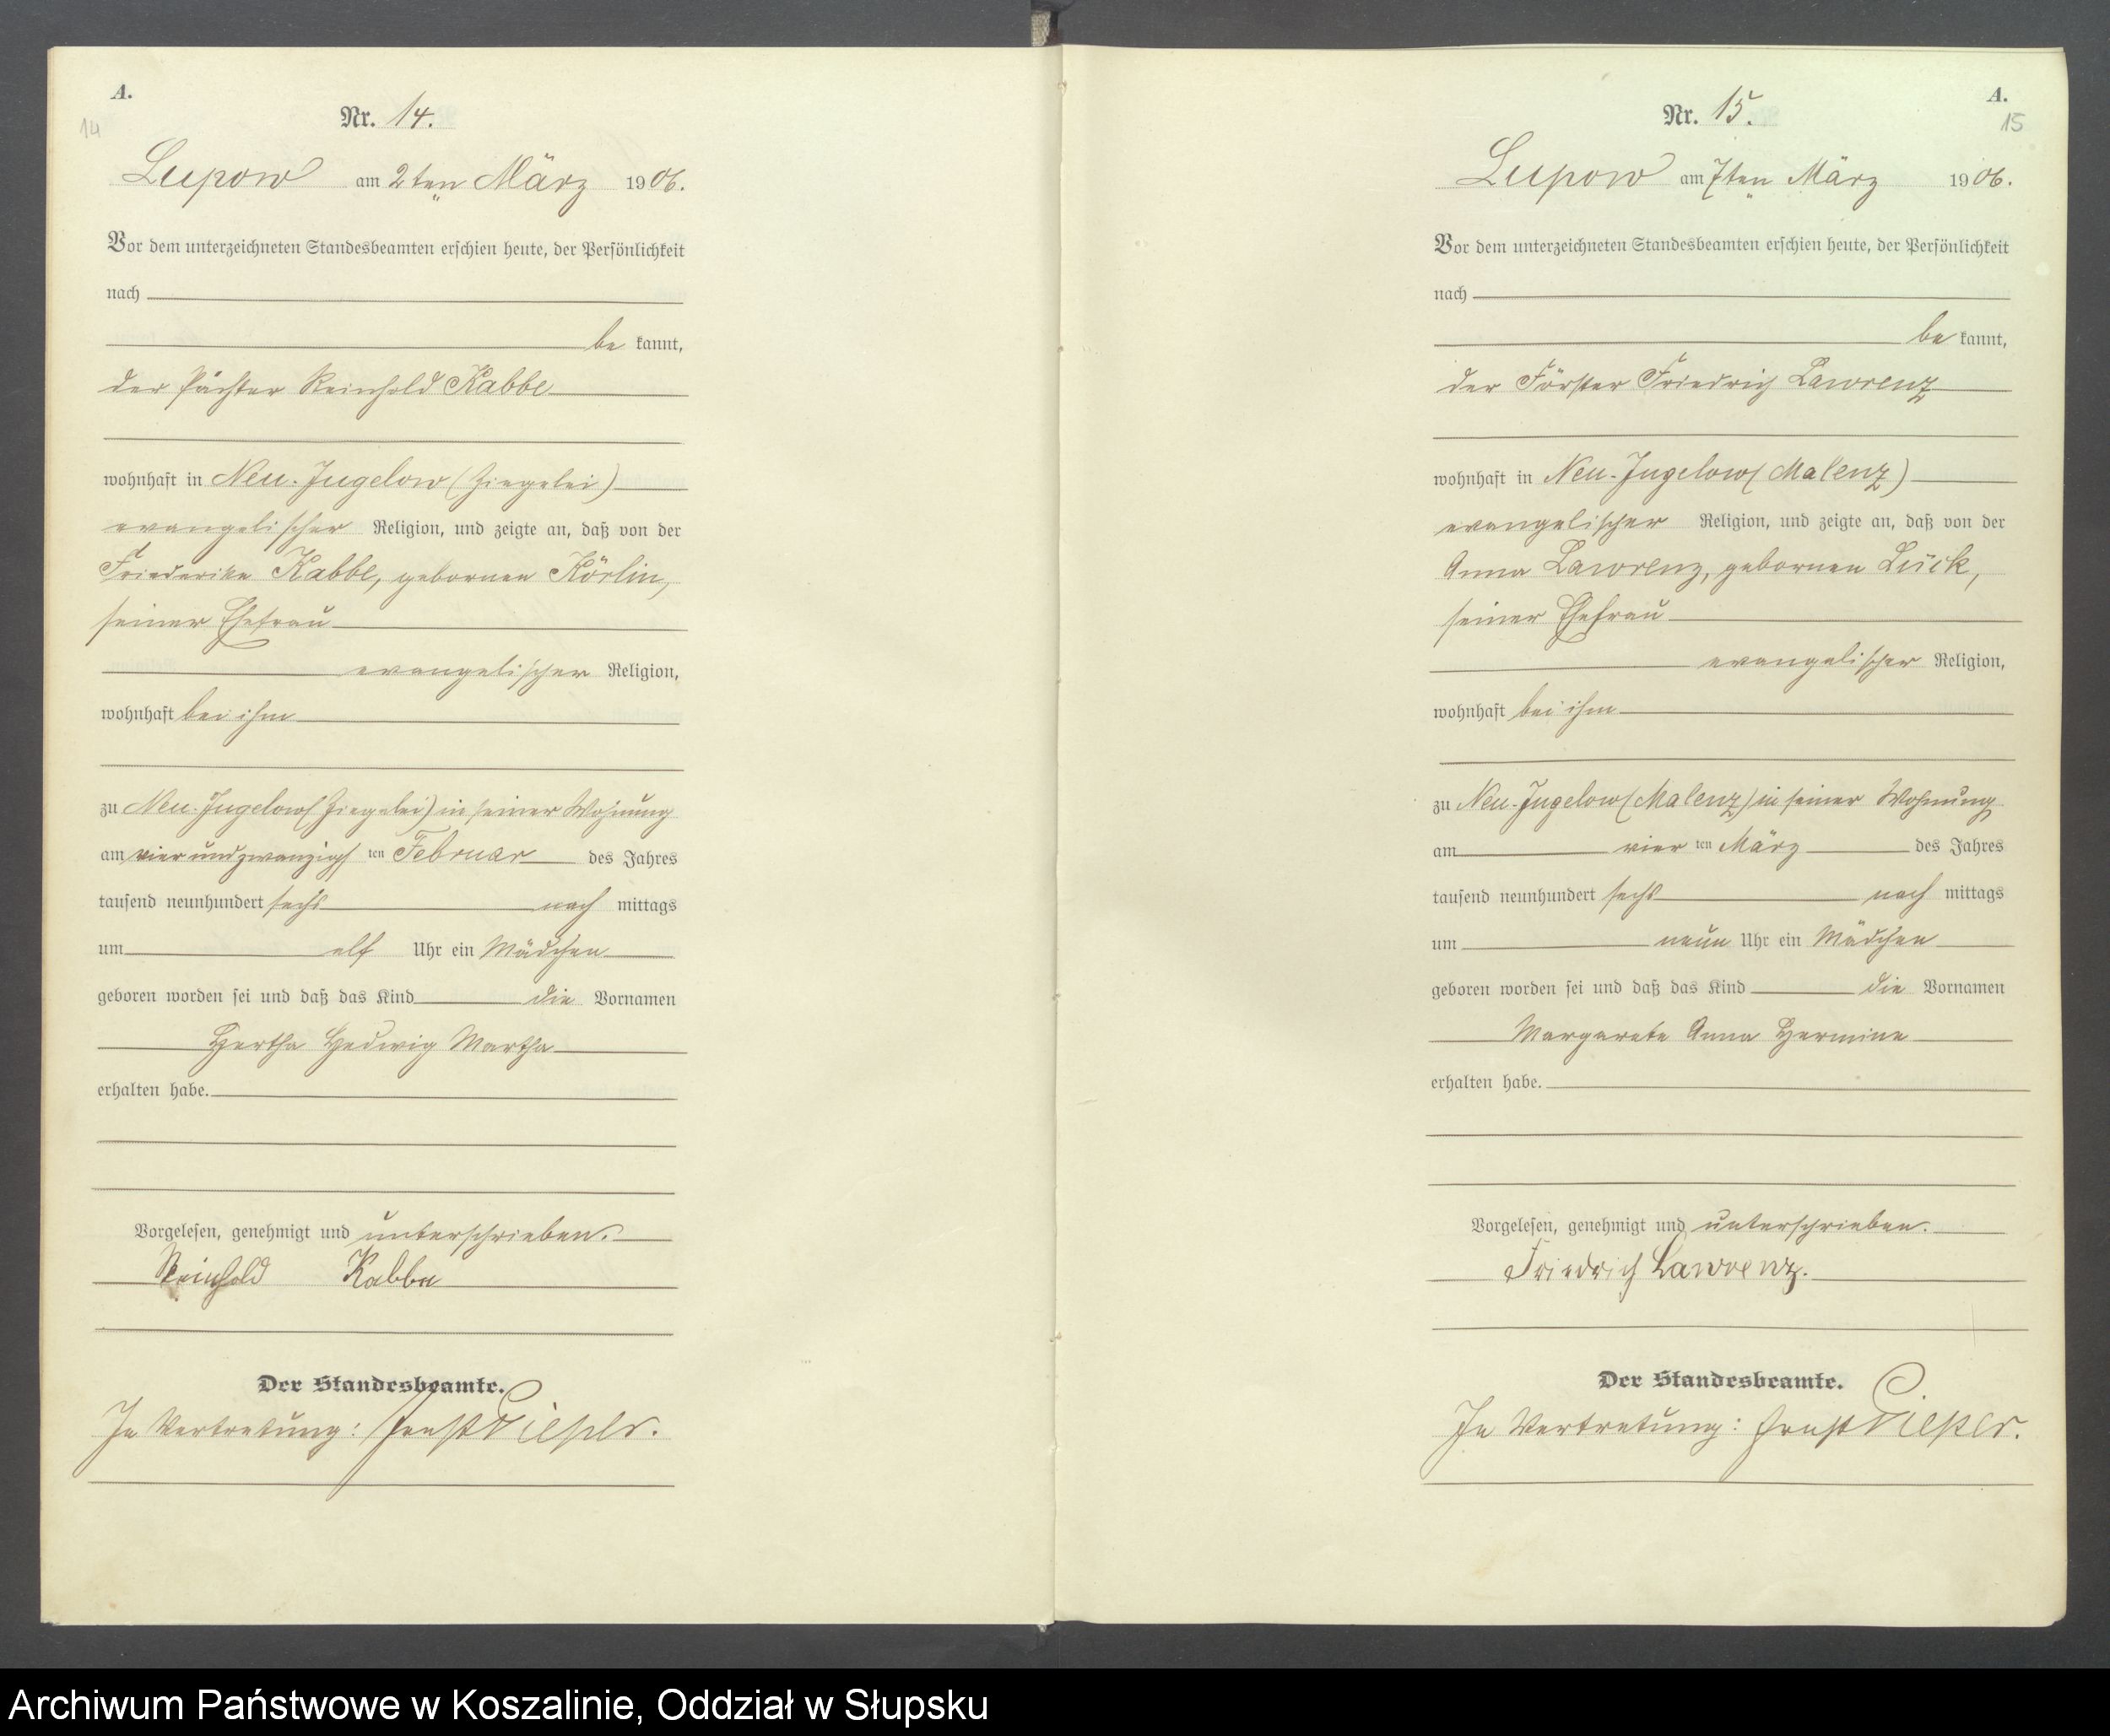 A.
Nr. 14.
14
Lupow am 2ten März 1906.
Vor dem unterzeichneten Standesbeamten erschien heute, der Persönlichkeit
nach
be kannt,
der Pächter Reinhold Kabbe
wohnhaft in Neu-Jugelow (Ziegelei)
evangelischer Religion, und zeigte an, daß von der
Friederike Kabbe, gebornen Körlin,
seiner Ehefrau
evangelischer Religion,
wohnhaft bei ihm
zu Neu-Jugelow (Ziegelei) in seiner Wohnung
am vierundzwanzigs ten Februar des Jahres
tausend neunhundert sechs nach mittags
um elf Uhr ein Mädchen
geboren worden sei und daß das Kind die Vornamen
Hertha Hedwig Martha
erhalten habe.
Vorgelesen, genehmigt und unterschrieben.
Reinhold Kabbe
Der Standesbeamte.
In Vertretung: Ernst Pieper.
A.
Nr. 15.
15
Lupow am 7ten März 1906.
Vor dem unterzeichneten Standesbeamten erschien heute, der Persönlichkeit
nach
be kannt,
der Förster Friedrich Lawrenz
wohnhaft in Neu-Jugelow (Malenz)
evangelischer Religion, und zeigte an, daß von der
Anna Lawrenz, gebornen Lück,
seiner Ehefrau
evangelischer Religion,
wohnhaft bei ihm
zu Neu-Jugelow (Malenz) in seiner Wohnung
am vier ten März des Jahres
tausend neunhundert sechs nach mittags
um neun Uhr ein Mädchen
geboren worden sei und daß das Kind die Vornamen
Margarete Anna Hermine
erhalten habe.
Vorgelesen, genehmigt und unterschrieben.
Friedrich Lawrenz.
Der Standesbeamte.
In Vertretung: Ernst Pieper.
Archiwum Państwowe w Koszalinie, Oddział w Słupsku